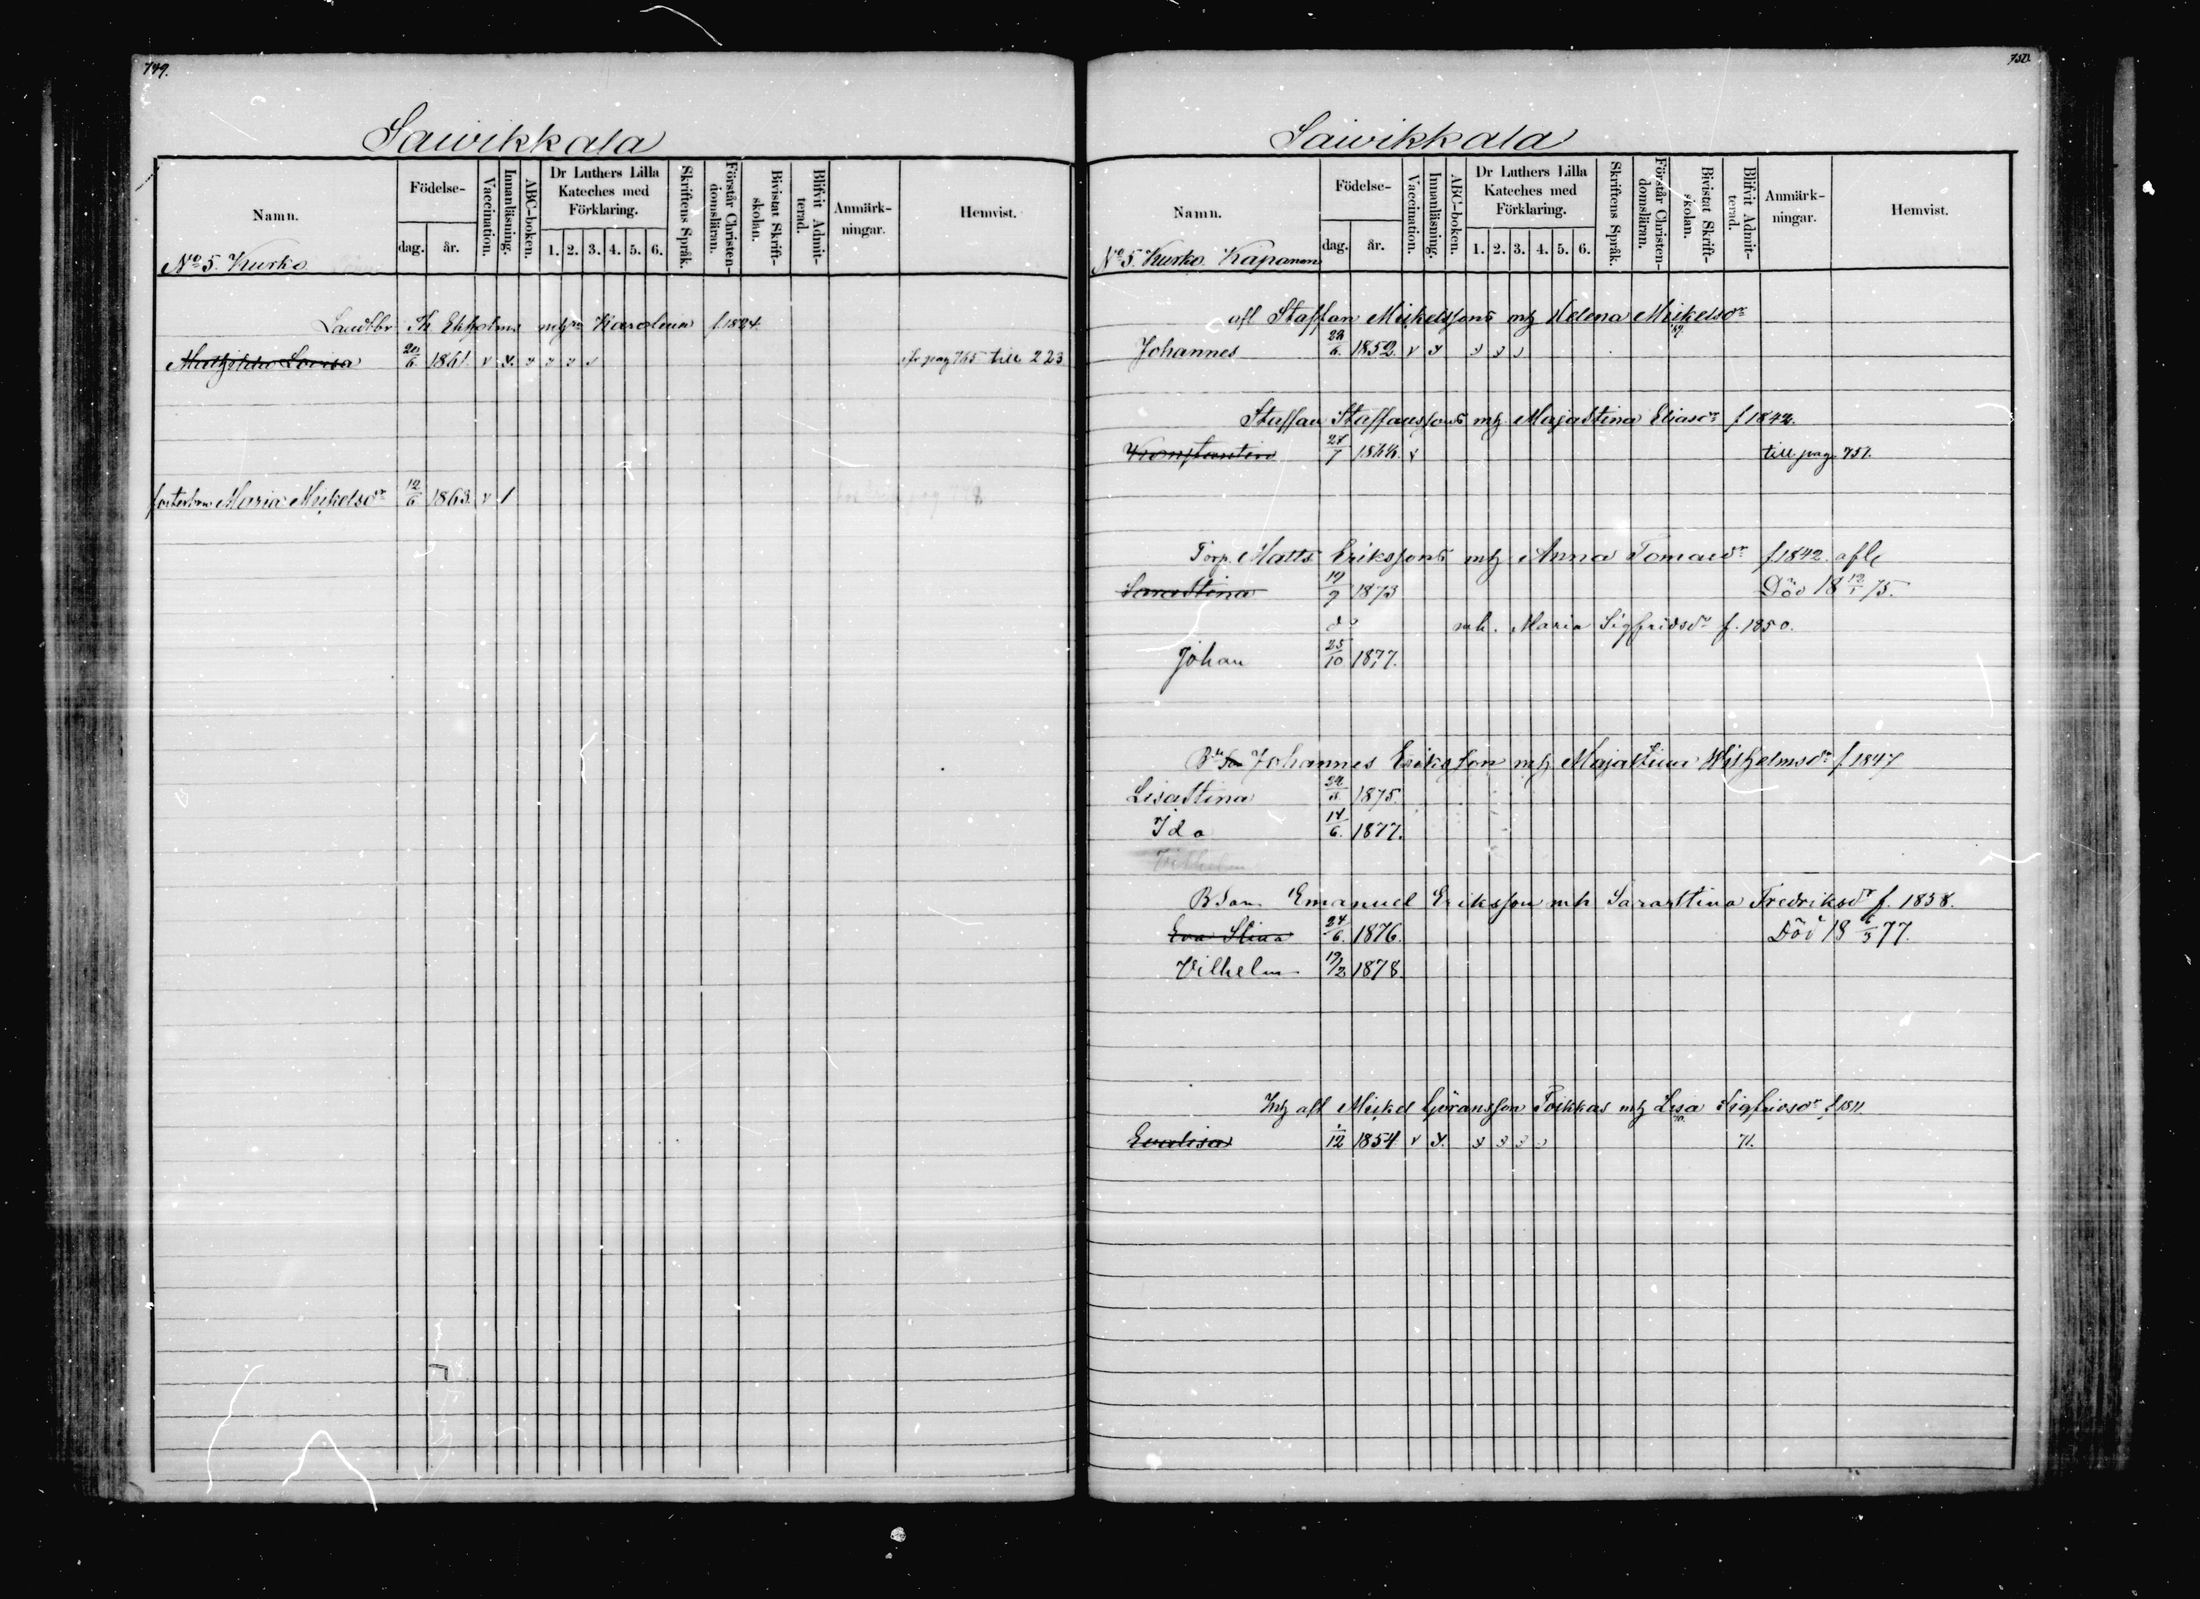 749.
Saivikkala
Namn.
Födelse-
dag.
år.
Vaccination.
Innanläsning.
ABC-boken.
Dr Luthers Lilla
Kateches med
Förklaring.
1. 2. 3. 4. 5. 6.
Skriftens Språk.
Förstår Christen-
domsläran.
Bivistat Skrift-
skolan.
Blifvit Admit-
terad.
Anmärk-
ningar.
Hemvist.
No 5. Kurko
Landbr Th Ekholms mh Karolina f 1824.
Mathilda Lovisa 20/6 1861. v fr pag 765 till 223
Maria Mickelsdr 12/6 1863. v 1
750
Saivikkala
Namn.
Födelse-
dag.
år.
Vaccination.
Innanläsning.
ABC-boken.
Dr Luthers Lilla
Kateches med
Förklaring.
1. 2. 3. 4. 5. 6.
Skriftens Språk.
Förstår Christen-
domsläran.
Bivistat Skrift-
skolan.
Blifvit Admit-
terad.
Anmärk-
ningar.
Hemvist.
No 5. Kurko Kapanen
afl Staffan Mickelssons mh Helena Mickelsdr
Johannes 1852. v
Staffan Staffanssons mh Maja Stina Eliasdr f 1842.
Konstantin 27/7 till pag 751.
Torp. Matts Erikssons mh Anna Tomasdr f 1842. afl
Sara Stina 19/9 1873 Död 18 12/1 75.
do mh. Maria Sigfridsdr f. 1850.
Johan 25/10 1877.
Johannes Eriksson mh Maja Stina Wilhelmsdr f 1847
Lisa Stina 1875.
Ida 14/6. 1877.
Vilhelm
B Son Emanuel Eriksson mh Sara Stina Fredriksdr f. 1858.
Eva Stina 24/6. 1876. Död 18 77.
Vilhelm 19/2 1878.
Inh afl Mickel Göransson Toikkas mh Lisa Sigfridsdr f 1811.
Evalisa 1/12 1854 v 71.